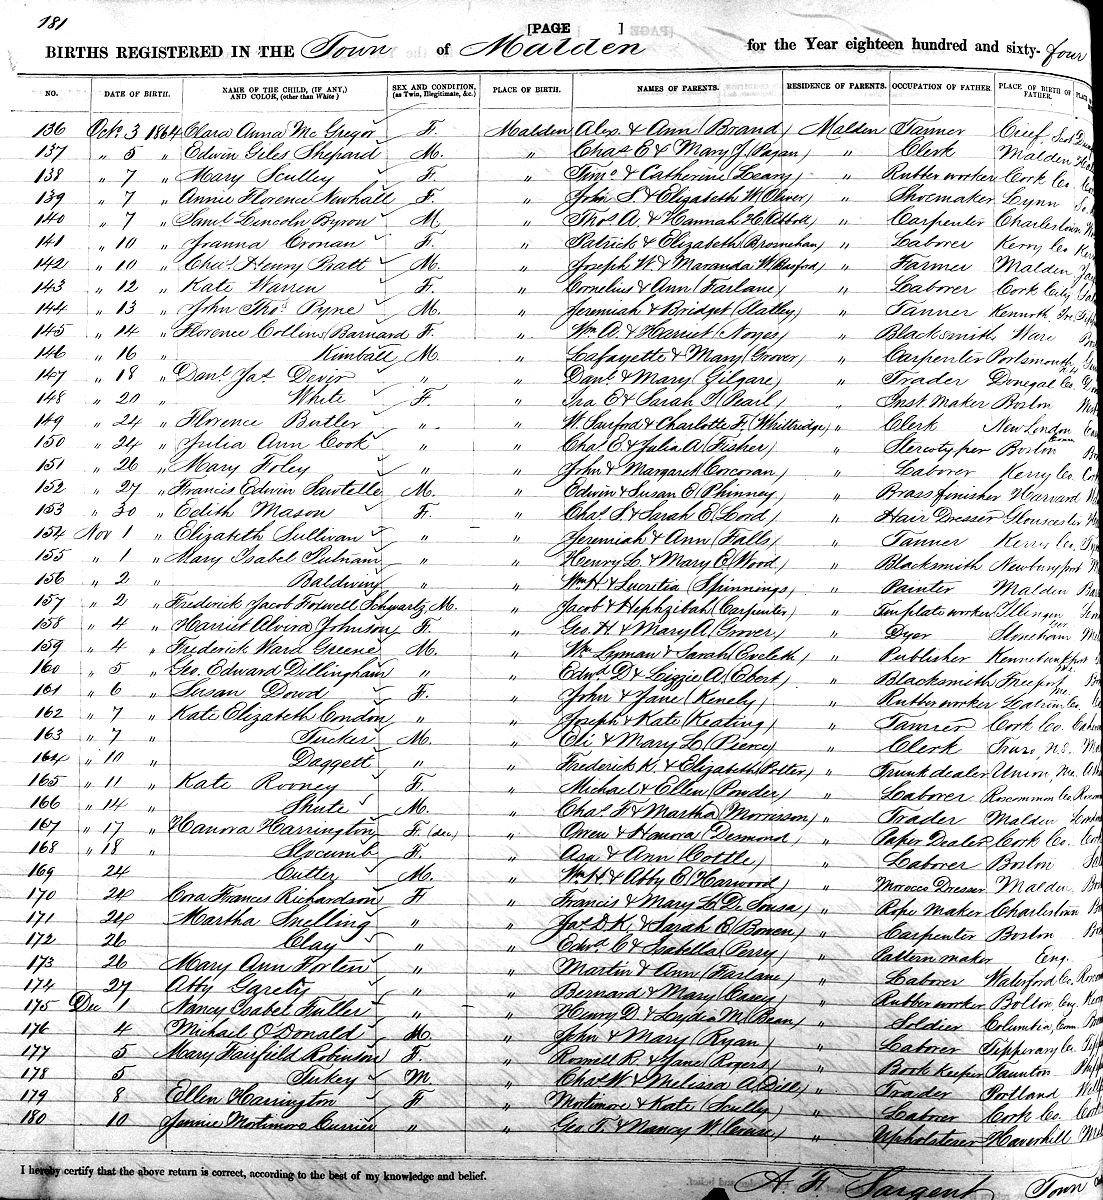 181
[PAGE ]
BIRTHS REGISTERED IN THE Town of Malden for the Year eighteen hundred and sixty-four
NO. DATE OF BIRTH. NAME OF THE CHILD, (IF ANY,) AND COLOR, (other than White) SEX AND CONDITION, (as Twin, Illegitimate, &c.) PLACE OF BIRTH. NAMES OF PARENTS. RESIDENCE OF PARENTS. OCCUPATION OF FATHER. PLACE OF BIRTH OF FATHER.
136 Octo. 3 1864 Clara Anna Mc Gregor F. Malden Alex. & Ann (Brand) Malden Tanner Crief, Scot
137 " 5 " Edwin Giles Shepard M. " Chas E & Mary J. (Pagan) " Clerk Malden
138 " 7 " Mary Sculley F. " Timo. & Catherine (Leary) " Rubber worker Cork Co.
139 " 7 " Annie Florence Newhall F. " John S & Elizabeth W. (Oliver) " Shoemaker Lynn
140 " 7 " Saml. Lincoln Byron M. " Thos A. & Hannah H. (Abbott) " Carpenter Charlestown
141 " 10 " Joanna Cronan F. " Patrick & Elizabeth (Brosnehan) " Laborer Kerry Co.
142 " 10 " Chas. Henry Pratt M. " Joseph W. & Maranda W. (Basford) " Farmer Malden
143 " 12 " Kate Warren F. " Cornelius & Ann (Farlane) " Laborer Cork City
144 " 13 " John Thos. Pyne M. " Jeremiah & Bridget (Slatley) " Tanner
145 " 14 " Florence Collins Barnard F. " Wm A. & Harriet (Noyes) " Blacksmith Ware
146 " 16 " Kimball M. " Lafayette & Mary (Grover) " Carpenter Portsmouth N.H.
147 " 18 " Danl. Jas Devir " " Danl. & Mary (Gilgare) " Trader Donegal Co.
148 " 20 " White F. " Ira E & Sarah P. (Pearl) " Inst. Maker Boston
149 " 24 " Florence Butler " " W. Sanford & Charlotte F. (Whittridge) " Clerk New London Conn
150 " 24 " Julia Ann Cook " " Chas. E & Julia A. (Fisher) " Stereotyper Boston
151 " 26 " Mary Foley " " John & Margaret (Corcoran) " Laborer Kerry Co.
152 " 27 " Francis Edwin Sawtelle M. " Edwin & Susan E. (Phinney) " Brass finisher Harvard
153 " 30 " Edith Mason F. " Chas. S. & Sarah E. (Lord) " Hair Dresser Gloucester
154 Nov 1 " Elizabeth Sullivan " " Jeremiah & Ann (Falls) " Tanner Kerry Co.
155 " 1 " Mary Isabel Putnam " " Henry L. & Mary E. (Wood) " Blacksmith Newburyport
156 " 2 " Baldwin " " Wm H. & Lucretia (Spinnings) " Painter Malden
157 " 2 " Frederick Jacob Folwell Schwartz M. " Jacob & Hephzibah (Carpenter) " Tin plate worker
158 " 4 " Harriet Alvira Johnson F. " Geo. H. & Mary A. (Grover) " Dyer Stoneham
159 " 4 " Frederick Ward Greene M. " Wm Lyman & Sarah (Eveleth) " Publisher Kennebunkport Me.
160 " 5 " Geo. Edward Dillingham " " Edwd D & Lizzie A. (Ebert) " Blacksmith Freeport Me.
161 " 6 " Susan Dowd F. " John & Jane (Kenely) " Rubber worker
162 " 7 " Kate Elizabeth Condon " " Joseph & Kate (Keating) " Tanner Cork Co.
163 " 7 " Tucker M. " Eli & Mary L. (Pierce) " Clerk Truro, N.S.
164 " 10 " Daggett " " Frederick K. & Elizabeth (Potter) " Trunk dealer Union, Me.
165 " 11 " Kate Rooney F. " Michael & Ellen (Ponder) " Laborer Roscommon Co.
166 " 14 " Shute M. " Chas. F. & Martha (Morrisson) " Trader Malden
167 " 17 " Hanora Harrington F. (dec) " Owen & Honora (Desmond) " Paper Dealer Cork Co.
168 " 18 " Slocumb F. " Asa & Ann (Cottle) " Laborer Boston
169 24 Cutler M. " Wm H. & Abby E. (Harwood) " Morocco Dresser Malden
170 24 Cora Frances Richardson F " Francis & Mary L. (De Sousa) " Rope Maker Charlestown
171 24 Martha Snelling " " Jas. D. K. & Sarah E. (Bowen) " Carpenter Boston
172 26 Clay " " Edwd. C & Isabella (Perry) " Pattern maker Eng.
173 26 Mary Ann Forten " " Martin & Ann (Farlane) " Laborer Waterford Co.
174 27 Abby Garety " " Bernard & Mary (Casey) " Rubber worker Bolton, Eng.
175 Dec 1 Nancy Isabel Fuller " " Henry D. & Lydia M. (Bean) " Soldier Columbia, Conn.
176 4 Michael O'Donald M. " John & Mary (Ryan) " Laborer Tipperary Co.
177 5 Mary Fairfield Robinson F. " Roswell R. & Jane (Rogers) " Book keeper Taunton
178 5 Tukey M. " Chas W. & Melissa A. (Dill) " Trader Portland
179 8 Ellen Harrington F " Mortimore & Kate (Scully) " Laborer Cork Co.
180 10 Jennie Mortimore Currier " " Geo. T. & Nancy W. (Crouse) " Upholsterer Haverhill
I hereby certify that the above return is correct, according to the best of my knowledge and belief.
A. F. Sargent Town